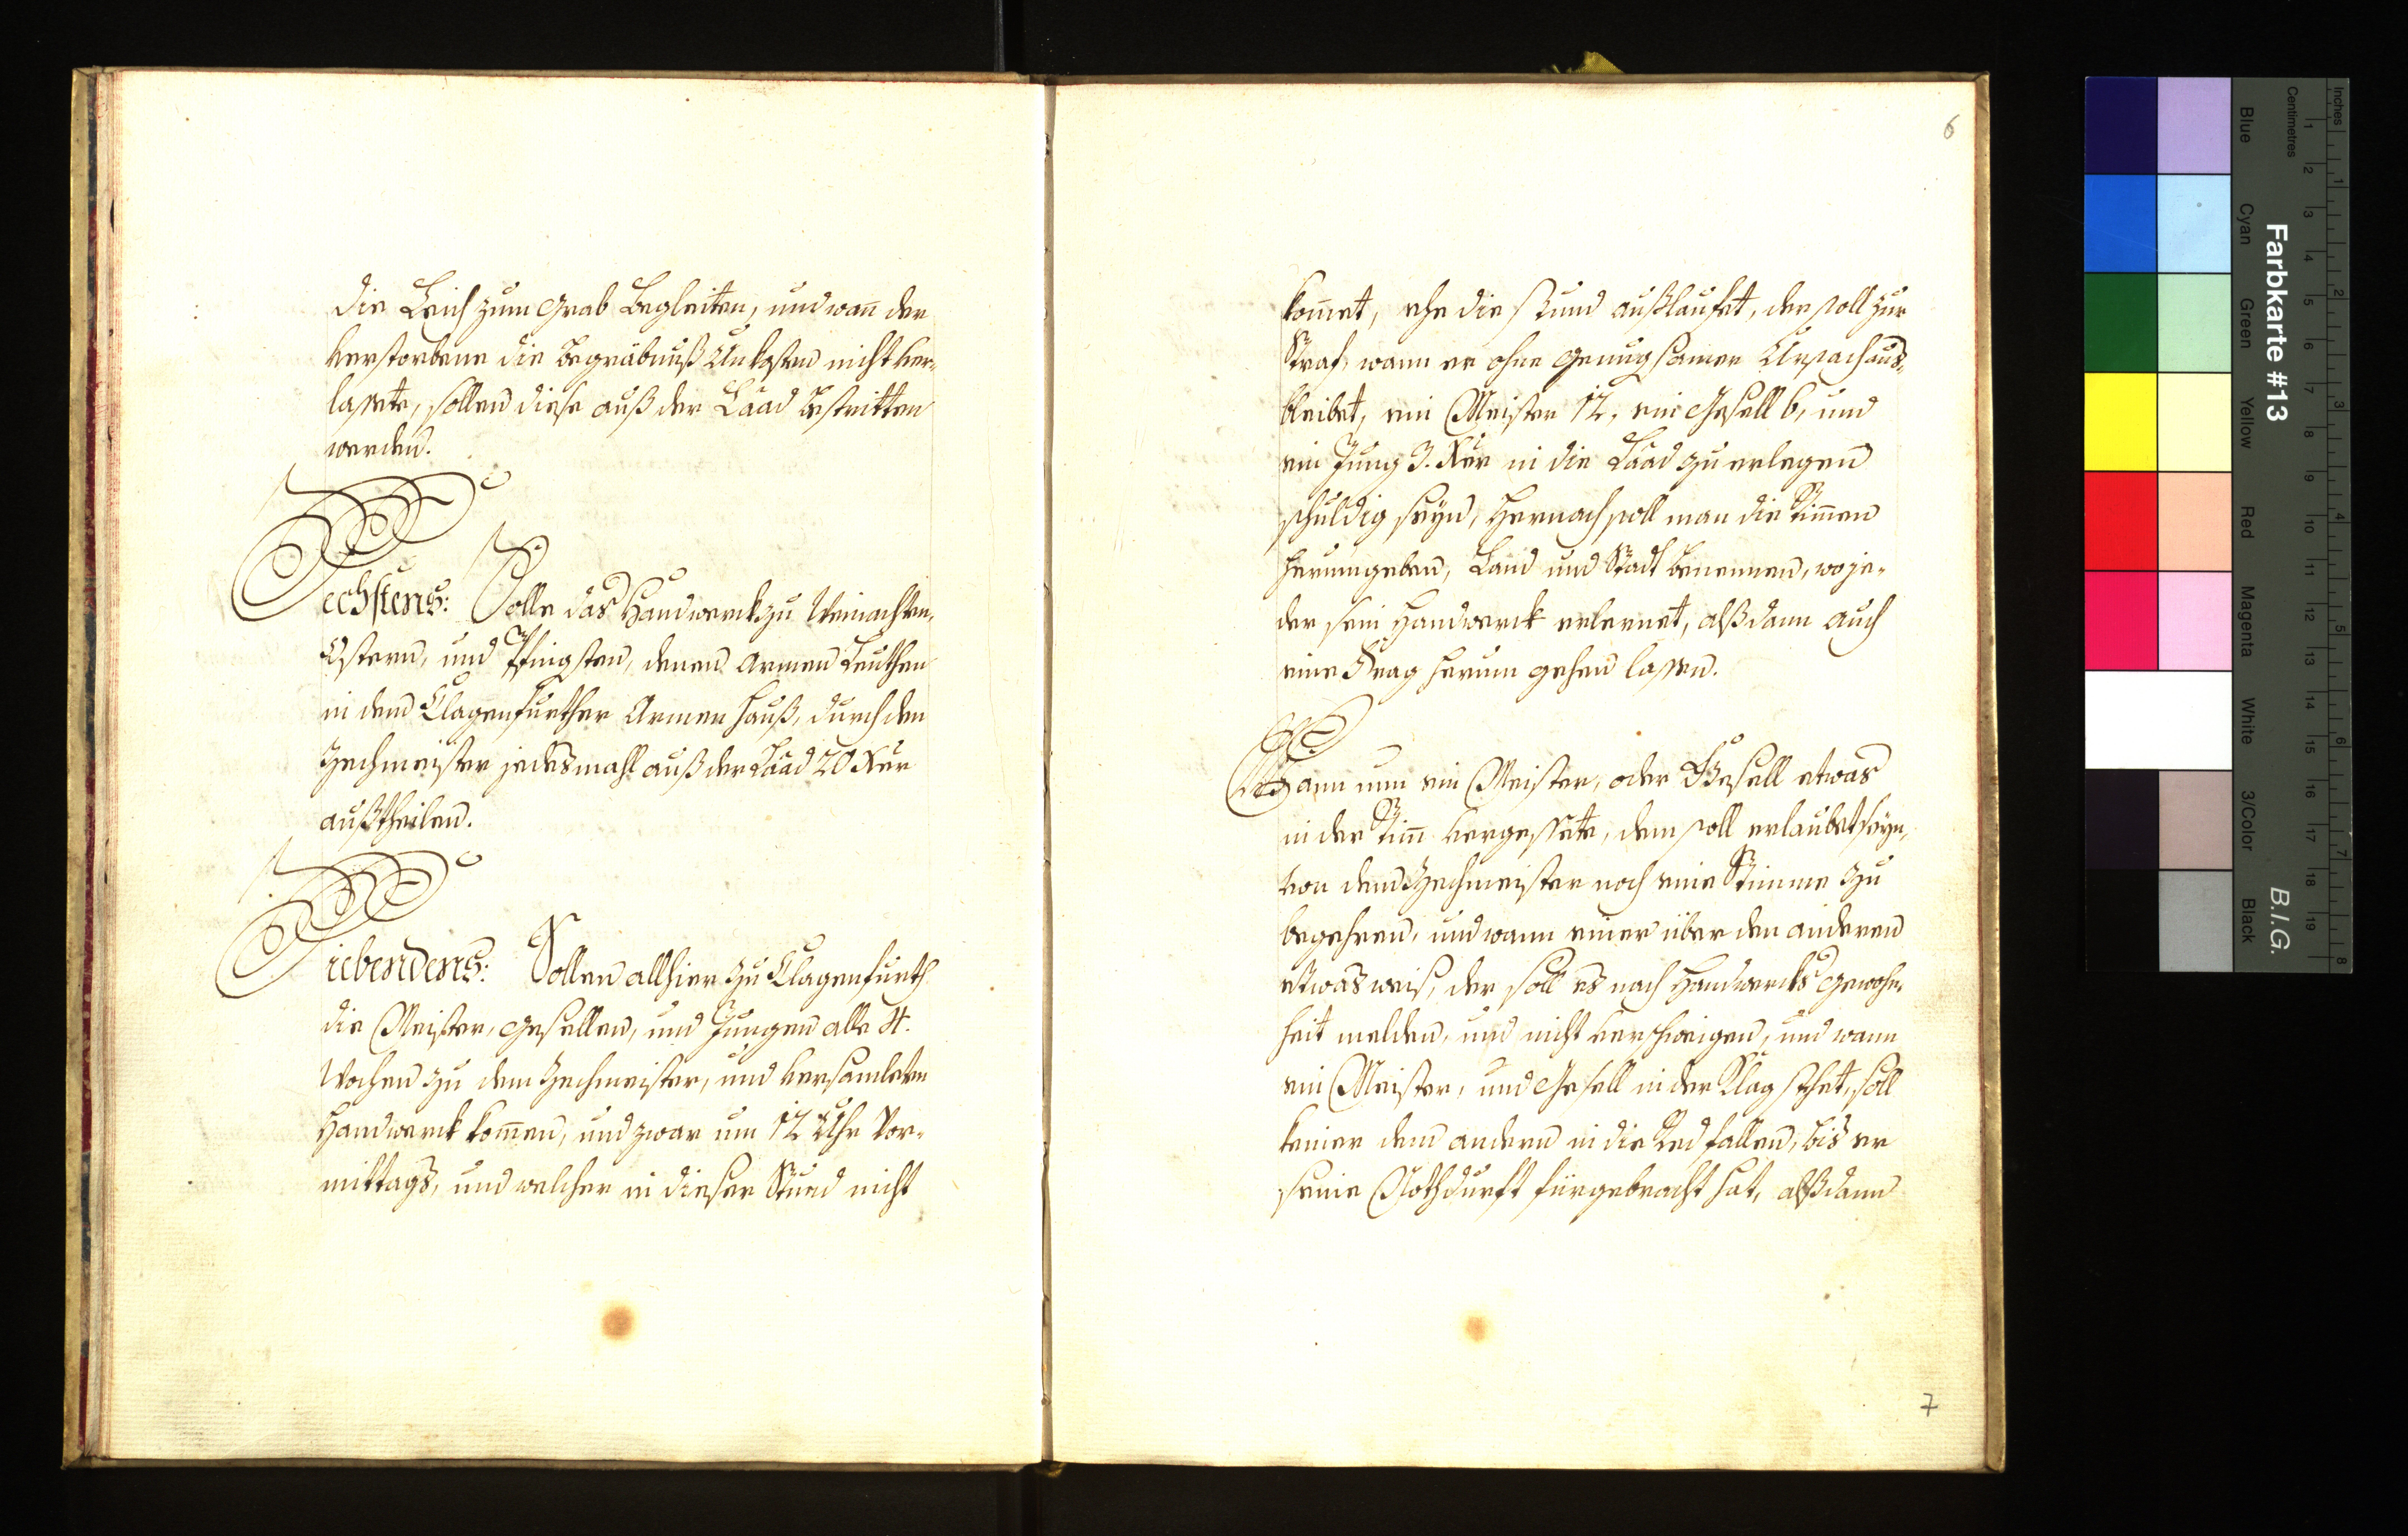 die Leich zum Grab Begleiten, und wañ der
verstorbene die Begräbnuß Unkosten nicht ver-
lassete, sollen diese auß der Laad bestritten
werden.
Sechstens: Solle das Handwerck zu Weinachten,
Ostern, und Pfingsten, denen Armen Leuthen
in dem Clagenfurther Armen Hauß, durch den
Zechmeister jedesmahl auß der Laad 20 Xer
außtheilen.
Siebendens: Sollen allhier zu Clagenfurth
die Meister, Gesellen, und Jungen alle 4.
Wochen zu dem Zechmeister, und versamleten
Handwerck kom̃en, und zwar um 12 Uhr Vor-
mittags, und welcher in dieser Stund nicht
6
kom̃et, ehe die Stund außlaufet, der soll zur
Straf, wann er ohne genugsamer Ursach aus-
bleibet, ein Meister 12, ein Gesell 6, und
ein Jung 3. Xer in die Laad zu erlegen
schuldig seyn, Hernach soll man die Stim̃en
herumgeben, Land und Stadt benennen, wo je-
der sein Handwerck erlernet, alßdann auch
eine Frag herum gehen lassen.
Wann nun ein Meister, oder Gesell etwas
in der Stim̃ vergessete, dem soll erlaubet seyn,
von dem Zechmeister noch eine Stimme zu
begehren, und wann einer über den anderen
etwas weis, der soll es nach Handwercks Gewohn-
heit melden, und nicht verschweigen, und wann
ein Meister, und Gesell in der Klag stehet, soll
keiner dem andern in die Red fallen, bis er
seine Nothdurft fürgebracht hat, alßdann
7
Farbkarte #13
B.I.G.
Inches
Centimetres
Blue
Cyan
Green
Yellow
Red
Magenta
White
3/Color
Black
1 2 3 4 5 6 7 8 9 10 11 12 13 14 15 16 17 18 19
1 2 3 4 5 6 7 8